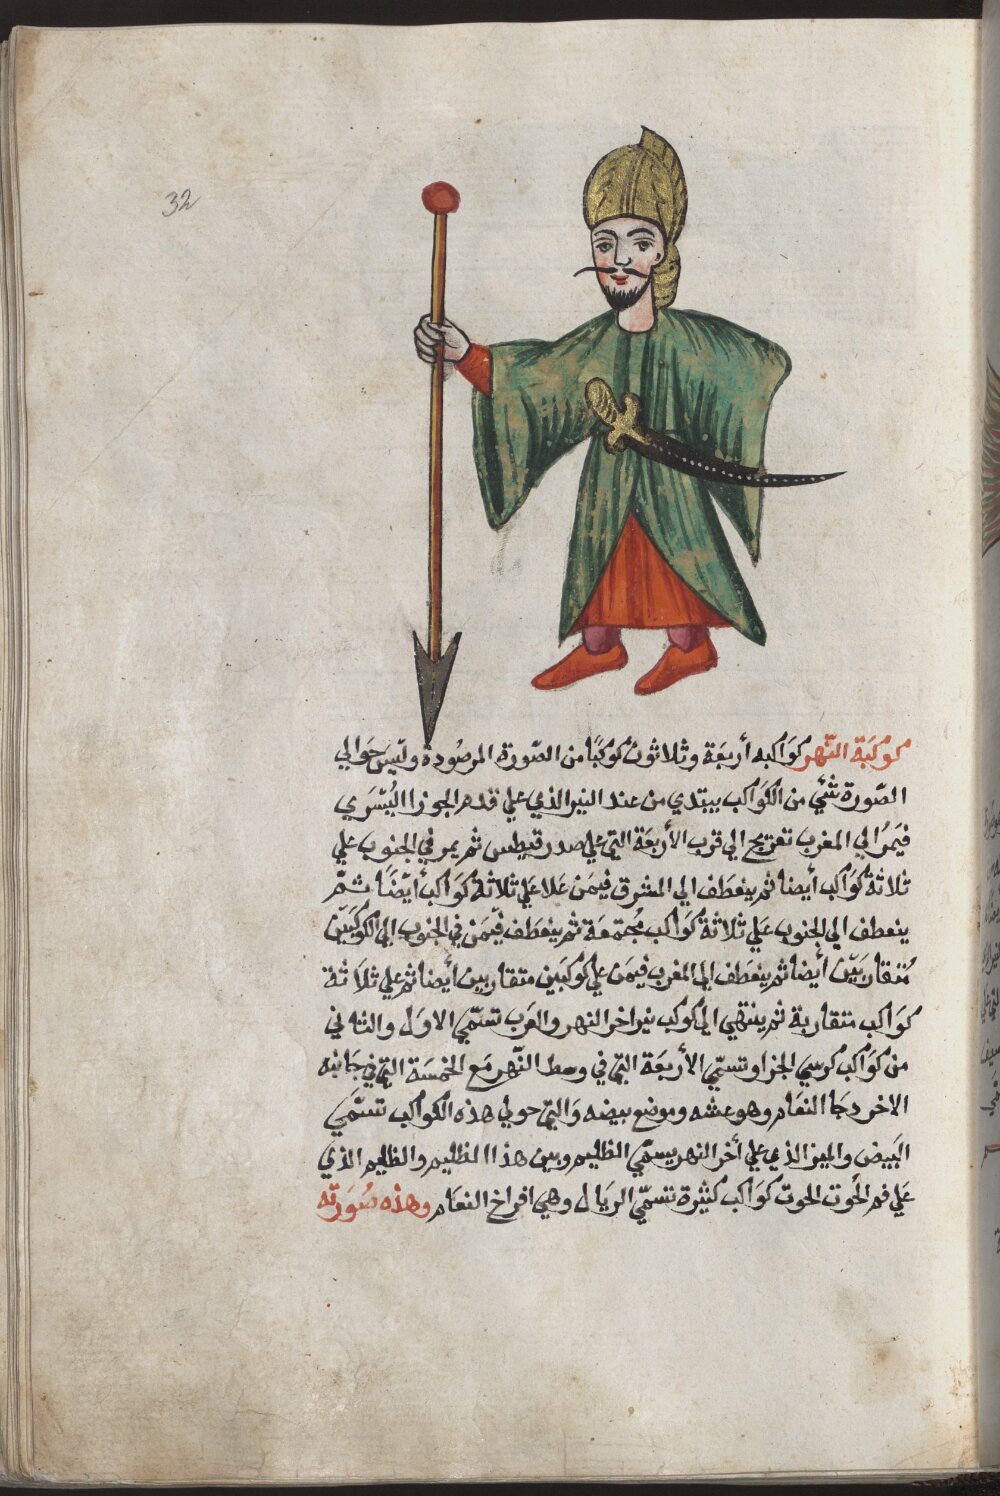 32
كَوكَبَة النّهر كوَاكبه أربعَة وثلاثون كوكبًا من الصّورة المرصُودة وليسَ حَوالي
الصّورة شئي من الكوَاكب يبتدي من عند النير الذي علي قدم الجوزا اليُسْري
فيَمرُ الي المغرب تعريج الي قرب الأربعَة التي علي صدر قيطس ثم يمر في الجنوب علي
ثلاثة كوَاكب أيضا ثم ينعَطف الي المشرق فيمَن علا علي ثلاثة كوَاكب أيضًا ثمّ
ينعطف الي الجنوب عَلي ثلاثة كوَاكب مُجتمعَة ثم ينعَطف فيمَن في الجنوب الي الكوكبَيْن
مُتقاربَيْن أيضا ثم ينعَطف الي المغرب فيمَن علي كوكبَين متقاربين أيضا ثم علي ثلاثة
كوَاكب متقاربة ثم ينتهي الي كوكب نير اخر النهر والعَرب تسَمّي الاوَل والثاني
من كوَاكب كرسي الجزا وتسمّي الأربعَة التي في وسط النّهر مَع الخمسَة التي في جَانبه
الاخر دجَا النعَام وهو عشه وموضع بيضه وَالتي حولي هذه الكواكب تسَمّي
البَيض والميز الذي علي أخر النهر يسمّي الظليم وبين هذا الظليم والظليم الذي
عَلي فم الحُوت الحوت كوَاكب كثيرة تسمّي الريَال وهي افراخ النعَام وهذه سُورَته